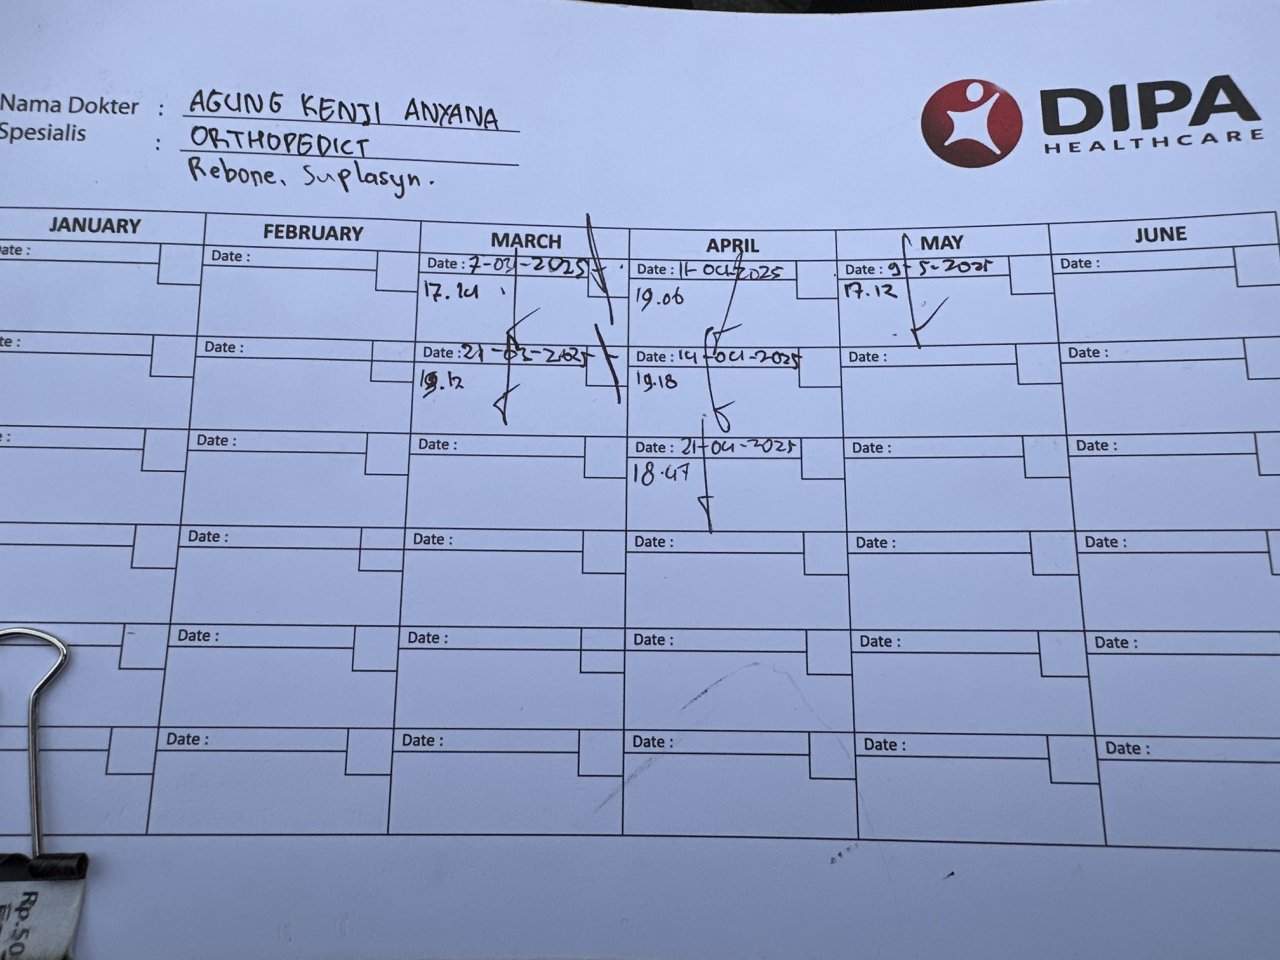 Nama Dokter : AGUNG KENJI ANYANA
Spesialis : ORTHOPEDICT
Rebone, Suplasyn.
DIPA
HEALTHCARE
JANUARY FEBRUARY MARCH APRIL MAY JUNE
ate : Date : Date : 7-03-2025 Date : 11-04-2025 Date : 9-5-2025 Date :
17.14 19.06 17.12
te : Date : Date : 21-03-2025 Date : 14-04-2025 Date : Date :
19.12 19.18
: Date : Date : Date : 21-04-2025 Date : Date :
18.47
Date : Date : Date : Date : Date :
Date : Date : Date : Date : Date :
Date : Date : Date : Date : Date :
Rp.50